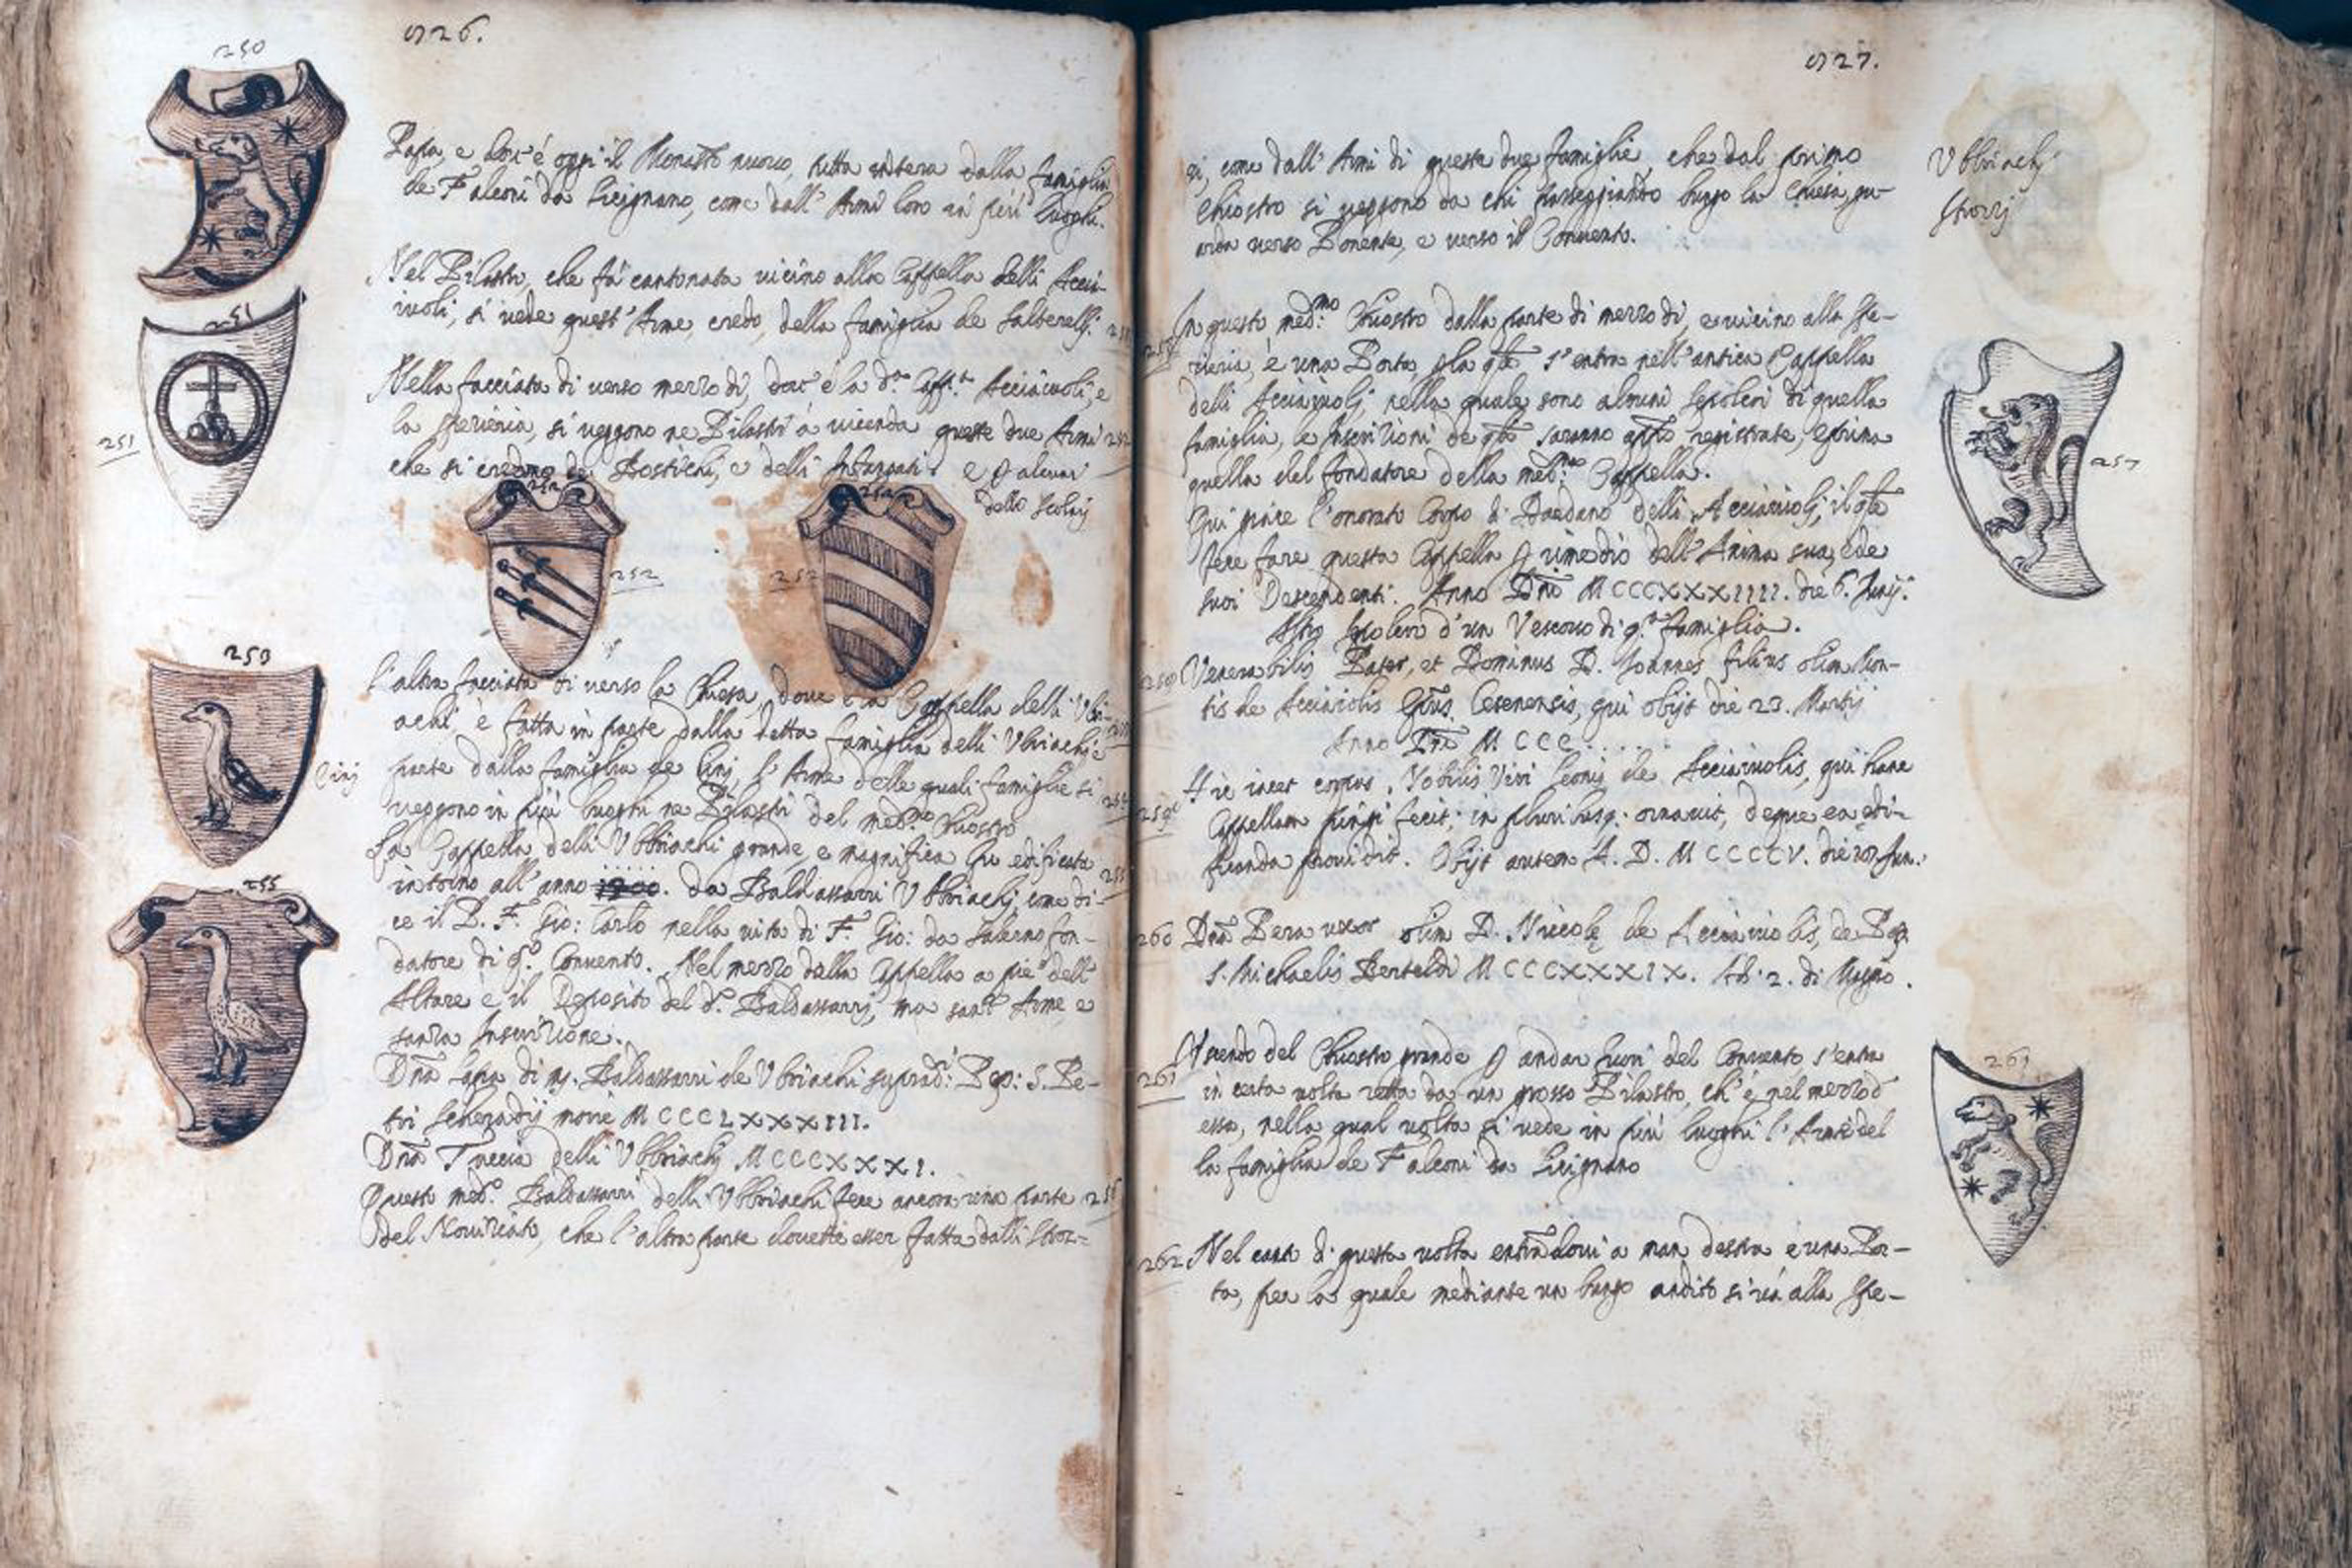 250
726.
Papa, e dov'è oggi il Monast.o nuovo, tutta intera dalla famiglia
de Falconi da Lucignano, come dall'Armi loro in più luoghi.
Nel Pilastro, che fà cantonata vicino alla Cappella delli Acci-
ivoli, si vede quest'Arme, credo, della famiglia de Salterelli. 251
251
251
Nella facciata di verso mezzo dì, dov'è la d.a Capp.a Acciaivoli, e
la spezieria, si veggono ne Pilastri à vicenda queste due Armi 252
che si credono de Bostichi, e delli Infangati. e p alcuni
dello Scolaij
252
252
252
252
253
l'altra facciata di verso la Chiesa, dove è la Cappella delli Ubri-
achi, è fatta in parte dalla detta famiglia delli Ubriachi, e
parte dalla famiglia de Cinj, l'Arme delle quali famiglie si
Cinj
veggono in più luoghi ne Pilastri del med.mo Chiostro
La Cappella delli Ubbriachi grande, e magnifica fu edificata
255
intorno all'anno da Baldassarri Ubbriachj, come di-
ce il P. F. Gio: Carlo nella vita di F. Gio: da Salerno fon-
datore di q.o Convento. Nel mezzo della Cappella a piè dell'
Altare è il Deposito del d.o Baldassarrj, ma sanz'Arme, e
sanza Inscrizione.
Dna Lapa di m. Baldassarri de Ubriachi suprad: Pop: S. Pe-
tri Scheradij MCCCLXXXIII.
Dna Tuccia delli Ubbriachj MCCCXXXI.
Questo med.o Baldassarri delli Ubbriachi fece ancora una parte 256
del Noviziato, che l'altra parte dovette esser fatta dalli Stroz-
727.
zi, come dall'Armi di queste due famiglie, che dal primo
Ubbriachj
Chiostro si veggono da chi passeggiando lungo la Chiesa, gu-
Strozzj
arda verso Ponente, e verso il Convento.
257 In questo med.mo Chiostro dalla parte di mezzo dì, e vicino alla Spe-
zieria, è una Porta, p la qle s'entra nell'antica Cappella
delli Acciaivolj, nella quale sono alcuni Sepolcri di quella
famiglia, le Inscrizioni de qli saranno app.o registrate, e prima
257
quella del fondatore della med.ma Cappella.
Qui giace l'onorato Corpo di Dardano delli Acciaivolj, il qle
fece fare questa Cappella p rimedio dell'Anima sua, e de
suoi Descendenti. Anno Dni MCCCXXXIIII. die 6. Junij.
Altro Sepolcro d'un Vescovo di q.a famiglia.
Venerabilis Pater, et Dominus D. Joannes filius olim Mon-
tis de Acciaiolis Eps. Cesenensis, qui obijt die 23. Martij
Anno Dni MCCC....
259 Hic iacet corpus Nobilis Viri Leonis de Acciaivolis, qui hanc
Cappellam pingi fecit, in pluribusq: ornavit, deque ea edi-
ficanda providit. Obijt autem A. D. MCCCCV. die Jun.
260 Dna Pera uxor olim D. Niccole de Acciaivolis, de Pop.
S. Michaelis Berteldi MCCCXXXIX. Ad. 2. di Magio.
261 Uscendo del Chiostro grande p andar fuori del Convento s'entra
in certa volta retta da un grosso Pilastro, ch'è nel mezzo d'
261
essa, nella qual volta si vede in più luoghi l'Arme del
la famiglia de Falconi da Lucignano
262 Nel canto di questa volta entrandovi a man destra è una Por-
ta, per la quale mediante un lungo andito si va alla Spe-